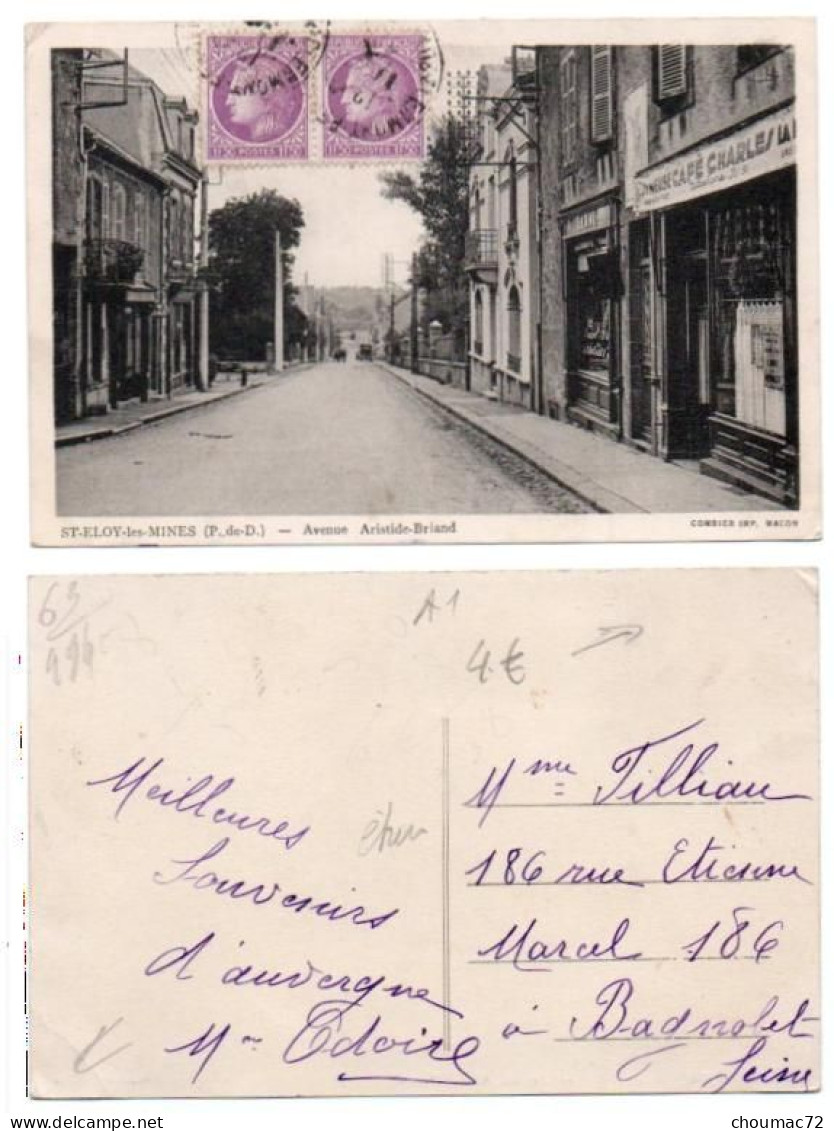 CLERMONT-F
12
CLERMONT-F
1F50 POSTES 1F50
1F50 POSTES 1F50
CAFÉ CHARLES
ST-ELOY-les-MINES (P.-de-D.) — Avenue Aristide-Briand
COMBIER IMP. MACON
63
A1
4 €
Meilleures
Souvenirs
d'auvergne
Mme Tilliau
186 rue Etienne
Marcel 186
à Bagnolet
Seine
choumac72